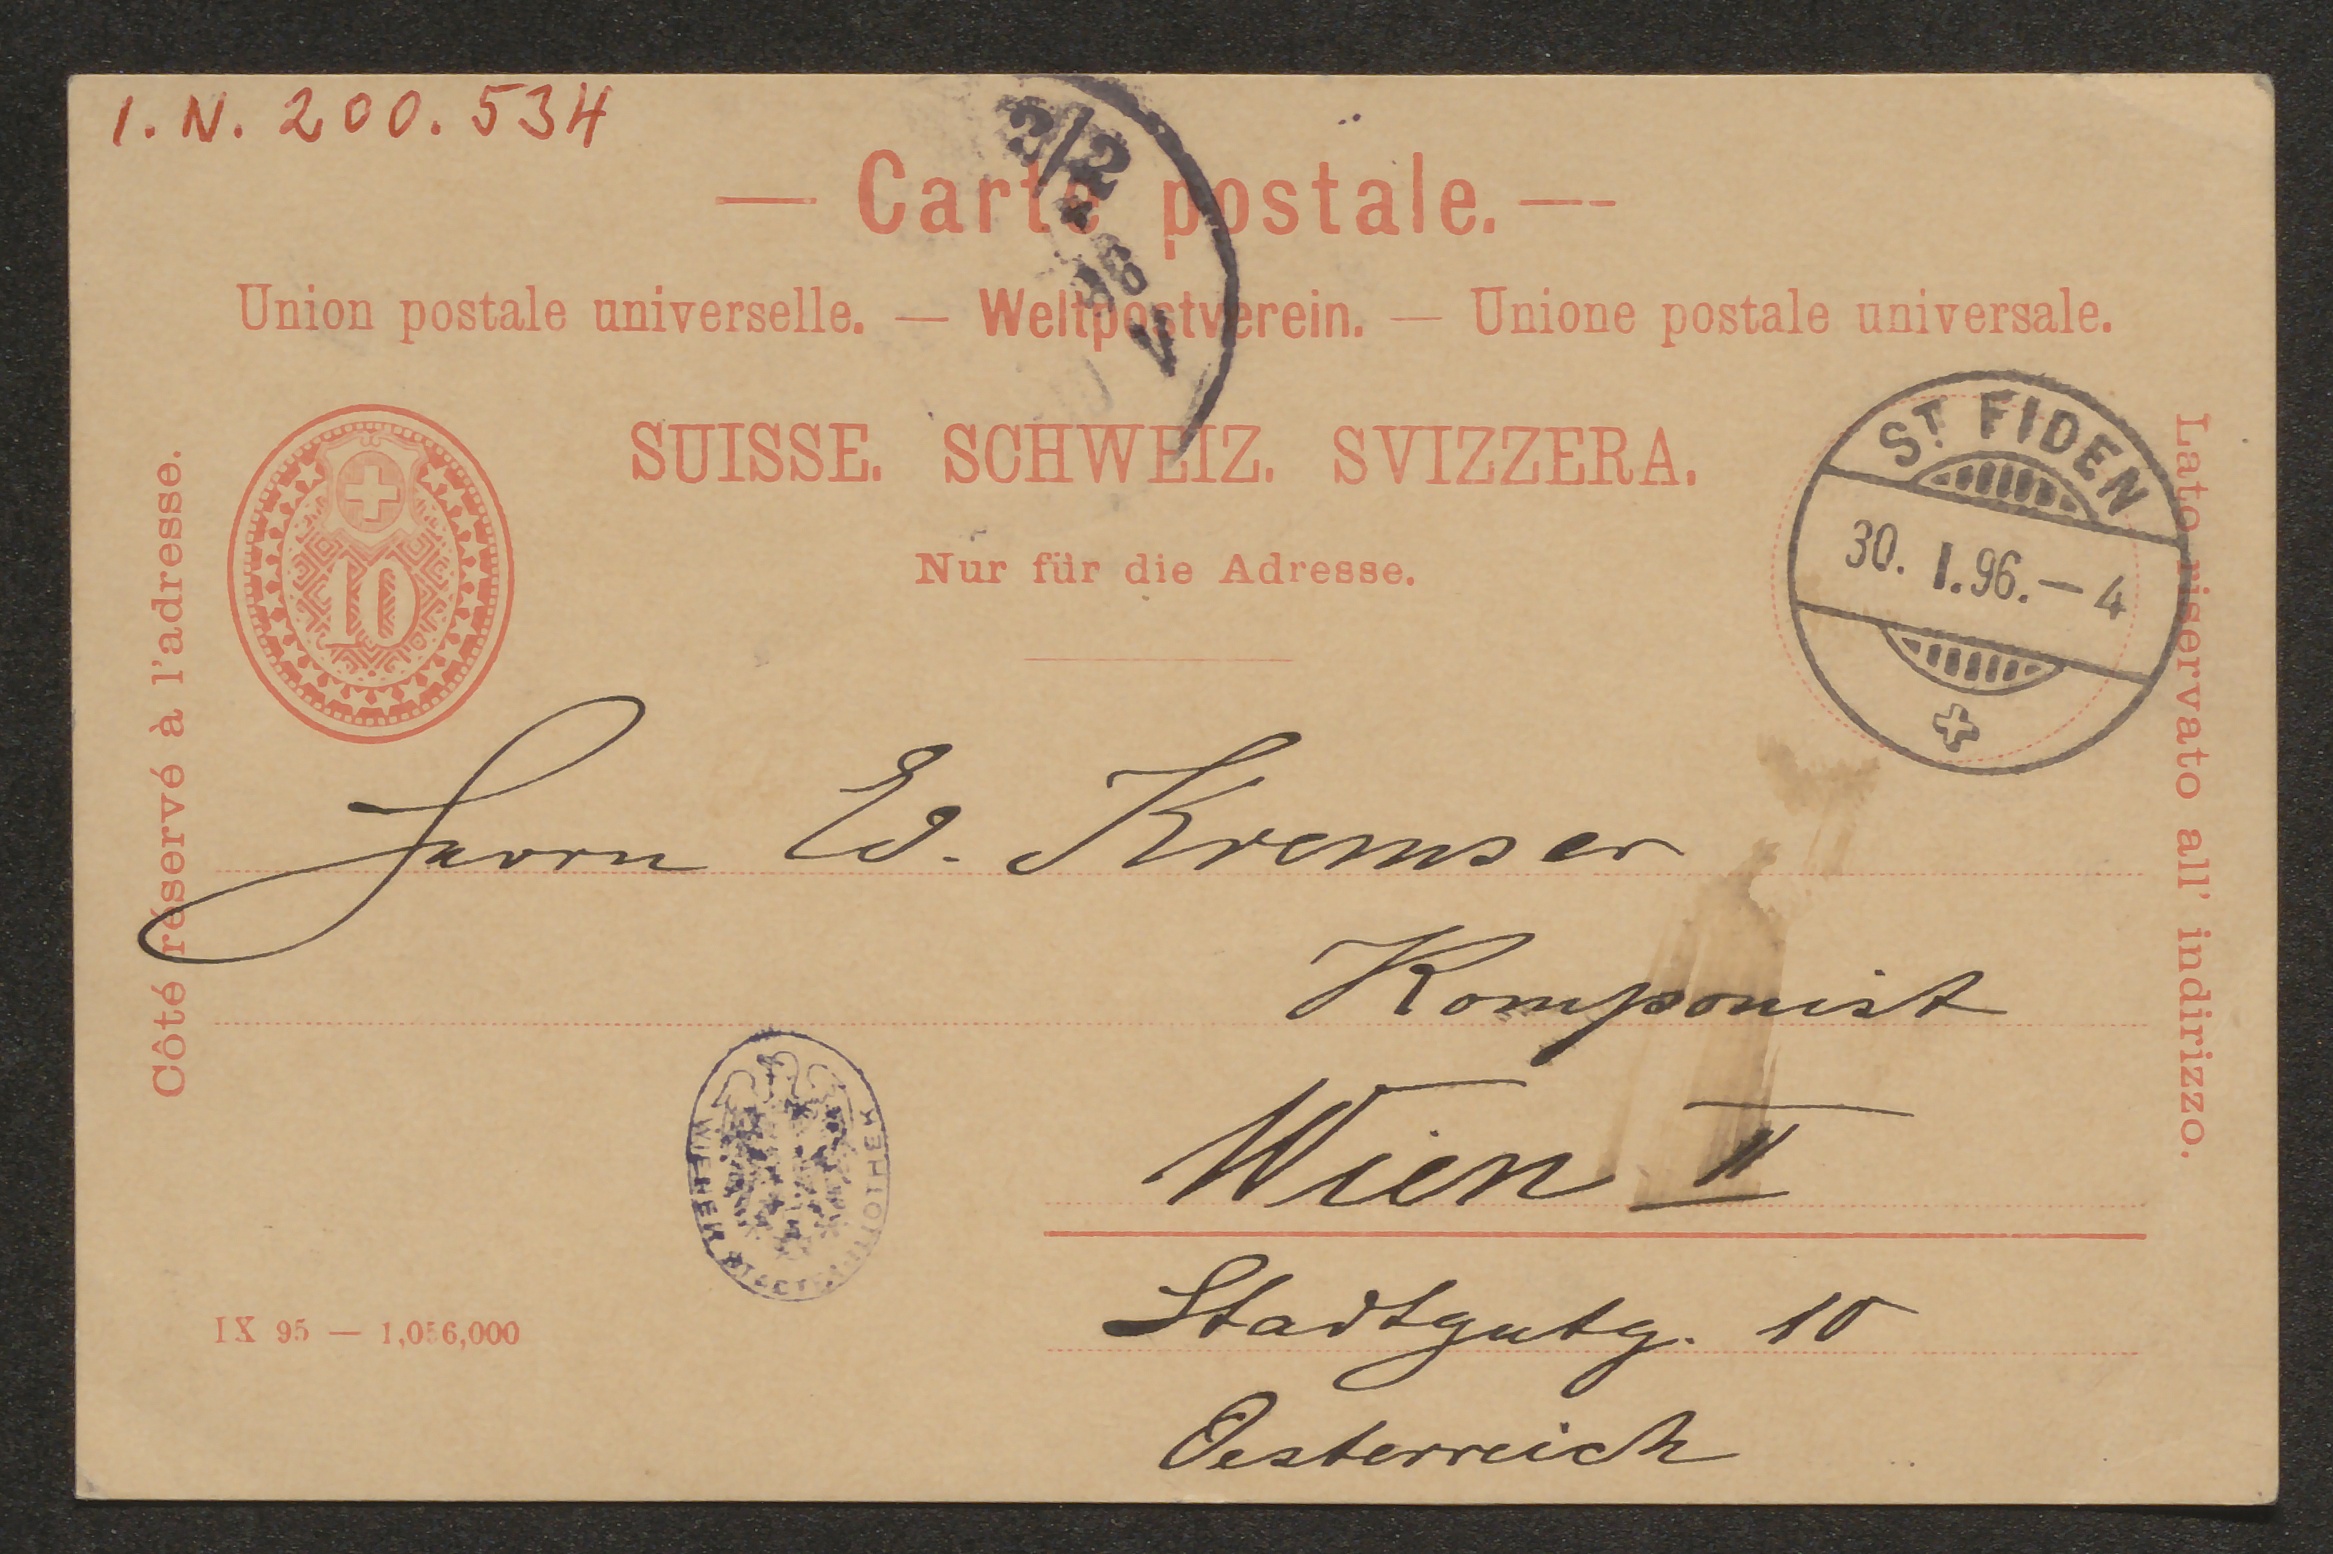 I.N. 200.534
2/2
96
V
— Carte postale. —
Union postale universelle. — Weltpostverein. — Unione postale universale.
SUISSE. SCHWEIZ. SVIZZERA.
Nur für die Adresse.
10
ST. FIDEN
30. I. 96. – 4
Côté réservé à l'adresse.
Lato riservato all' indirizzo.
Herrn Ed. Kremser
Komponist
Wien II
Stadtgutg. 10
Oesterreich
WIENER STADTBIBLIOTHEK
IX 95 — 1,056,000